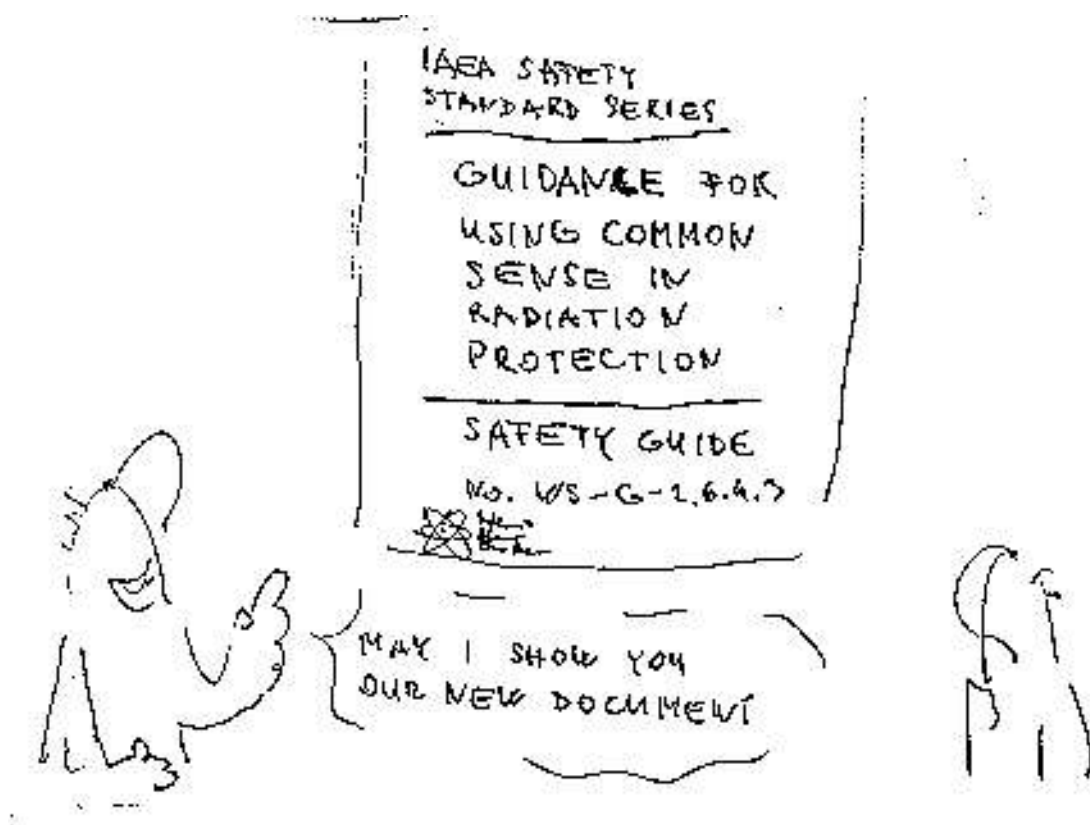 IAEA SAFETY
STANDARD SERIES
GUIDANCE FOR
USING COMMON
SENSE IN
RADIATION
PROTECTION
SAFETY GUIDE
No. WS-G-1.6.4.3
MAY I SHOW YOU
OUR NEW DOCUMENT